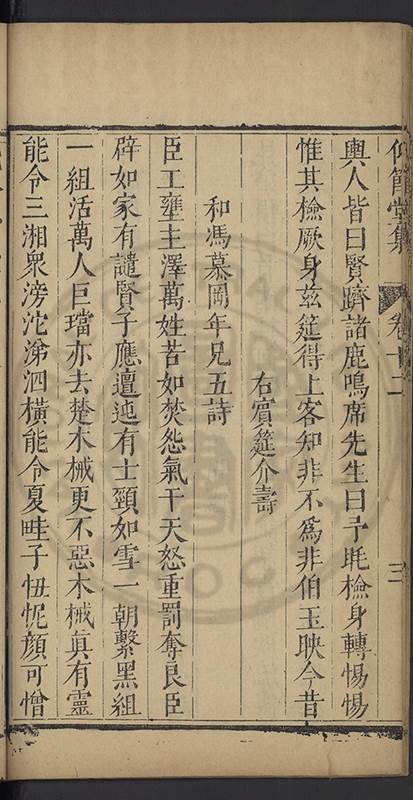 仰節堂集 卷十二 三
輿人皆曰賢躋諸鹿鳴席先生曰予耄檢身轉惕惕
惟其檢厥身茲筵得上客知非不為非伯玉映今昔
右賓筵介壽
和馮慕岡年兄五詩
臣工壅主澤萬姓苦如焚怨氣干天怒重罰奪良臣
辟如家有譴賢子應邅迍有士頸如雪一朝繫黑組
一組活萬人巨璫亦去楚木械更不惡木械真有靈
能令三湘眾滂沱涕泗橫能令夏畦子忸怩顏可憎